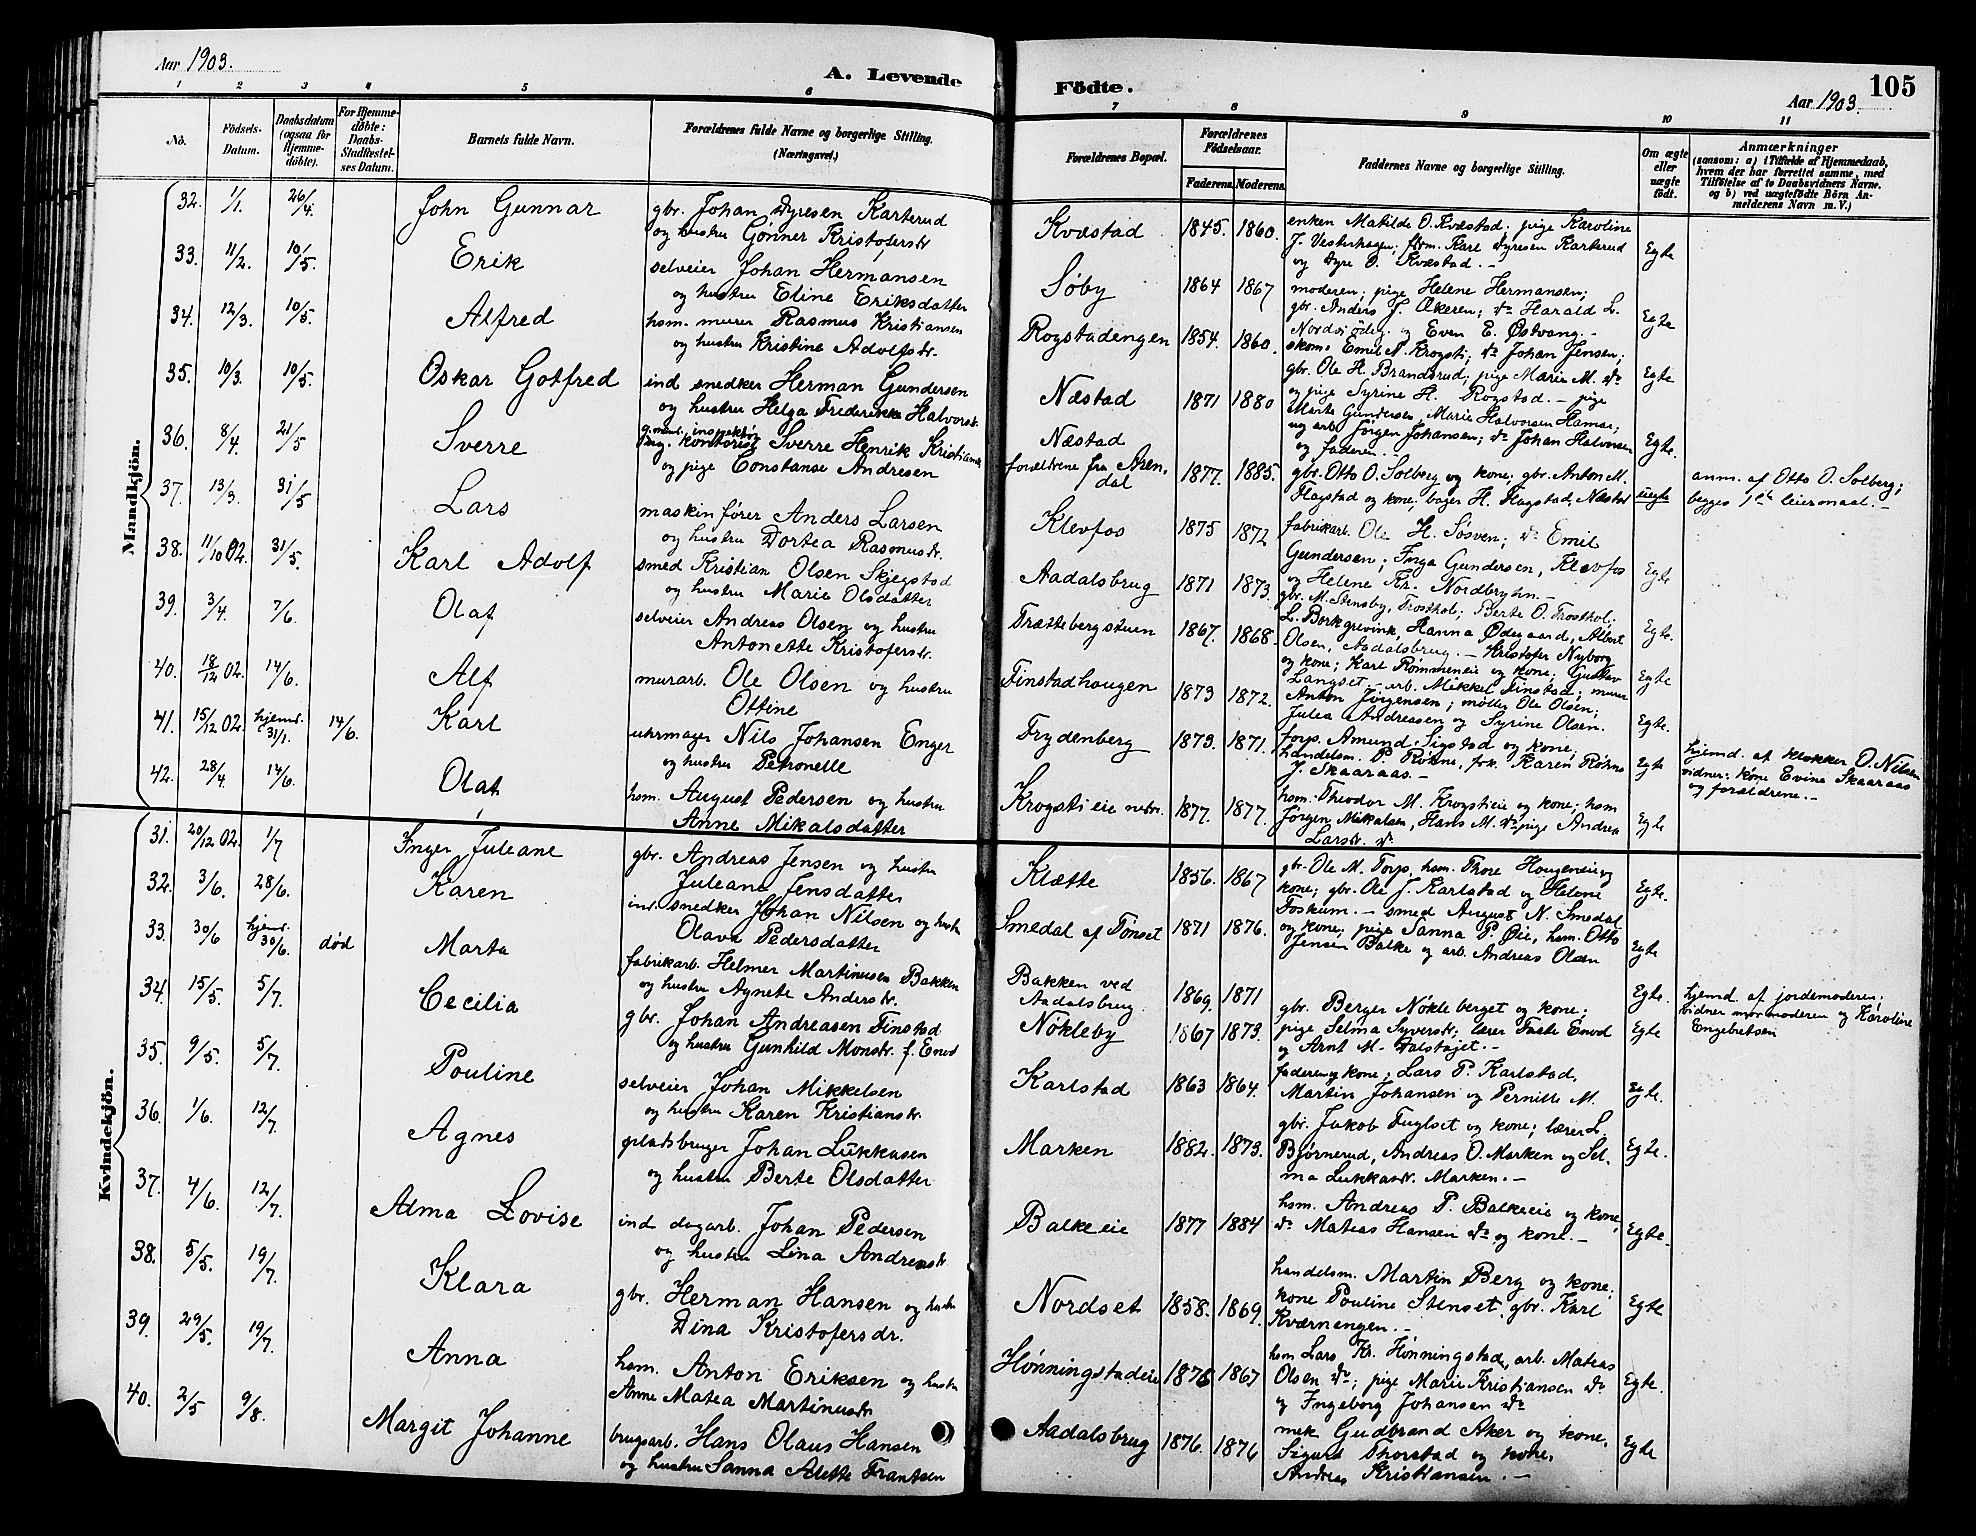 Aar 1903.
A. Levende
Födte.
105
Aar 1903.
1 2 3 4 5 6 7 8 9 10 11
No.
Födsels-Datum.
Daabsdatum (ogsaa for Hjemmedöbte).
For Hjemmedöbte: Daabs-Stadfæstelses Datum.
Barnets fulde Navn.
Forældrenes fulde Navne og borgerlige Stilling. (Næringsvei.)
Forældrenes Bopæl.
Forældrenes Födselsaar.
Faderens. Moderens.
Faddernes Navne og borgerlige Stilling.
Om ægte eller uægte födt.
Anmærkninger
(saasom: a) i Tilfælde af Hjemmedaab, hvem der har forrettet samme, med Tilföielse af to Daabsvidners Navne, og b) ved uægtefödte Börn Anmelderens Navn m. V.)
Mandkjön.
32. 1/1. 26/4. John Gunnar
gbr. Johan Dyresen Karterud
og hustru Gonner Kristofersdr
Kvæstad 1845. 1860.
enken Matilde O. Kvæstad; pige Karoline
J. Vesterhagen; Karl Dyresen Karterud
og Dyre O. Kvæstad. –
Egte
33. 11/2. 10/5. Erik
selveier Johan Hermansen
og hustru Eline Eriksdatter
Søby 1864 1867
moderen; pige Helene Hermansen;
gbr. Anders J. Økeren; do Harald L.
og Even E. Østvang. –
Egte
34. 12/3. 10/5. Alfred
hsm. murer Rasmus Kristiansen
og hustru Kristine Adolfsdr.
Rogstadengen 1854. 1860.
skom. Emil N. Krogsti; do Johan Jensen;
gbr. Ole H. Brandsrud; pige Marie M. do
og pige Syrine H. Rogstad. –
Egte
35. 10/3. 10/5. Oskar Gotfred
ind snedker Herman Gundersen
og hustru Helga Frederikke Halvorsdr.
Næstad 1871 1880
pige Marte Gundersen, Marie Halvorsen Hamar;
ug arb. Jörgen Johansen; do Johan Halvorsen
og faderen. –
Egte.
36. 8/4 21/5 Sverre
ung. kontorist Sverre Henrik Kristiansen
og pige Constanse Andresen
Næstad
forældrene fra Arendal 1877. 1885.
gbr. Otto O. Solberg og kone; gbr. Anton M.
Flagstad og kone; bager H. Flagstad, Næstad
uegte
anm. af Otto O. Solberg;
begges 1ste leiermaal. –
37. 13/3. 31/5 Lars
maskinfører Anders Larsen
og hustru Dortea Rasmusdr.
Klevfos 1875 1872
fabrikarb. Ole H. Søsven; do Emil
Gundersen; Inga Gundersen, Klevfos
og Helene Kr. Nordbryhn. –
Egte
38. 11/10 02. 31/5. Karl Adolf
smed Kristian Olsen Skjegstad
og hustru Marie Olsdatter
Aadalsbrug 1871 1873.
gbr. M. Stensby, Trosthol; Berte O. Trosthol;
L. Borkgrevink, Hanna Ødegaard, Albert
Olsen, Aadalsbrug. –
Egte.
39. 3/4 7/6. Olaf
selveier Andreas Olsen og hustru
Antonette Kristofersdr.
Trættebergstuen 1867. 1868.
Kristofer Nyborg
og kone; Karl Rømmeneie og kone; Gustav
Langset. –
Egte
40. 18/12 02. 14/6. Alf
murarb. Ole Olsen og hustru
Ottine
Finstadhaugen 1873 1872.
arb. Mikkel Finstad; murer
Anton Jörgensen; møller Ole Olsen;
Julea Andreassen og Syrine Olsen.
Egte.
41. 15/12 02. hjemd. 31/1. 14/6. Karl
uhrmager Nils Johansen Enger
og hustru Petronelle
Frydenberg 1873. 1871.
forp. Amund Sigstad og kone;
handelsm. P. Røhne, frk. Karen Røhne
J. Skaaraas. –
Egte
hjemd. af klokker O. Nilsen
vidner: kone Evine Skaaraas
og forældrene. –
42. 28/4 14/6. Olaf
hsm. August Pedersen og hustru
Anne Mikalsdatter
Krogstieie 1877. 1877.
hsm. Theodor M. Krogstieie og kone; hsm
Jörgen Mikalsen, Hans M. do pige Andrea
Larsdr. do.
Egte
Kvindekjön.
31. 20/12 02. 1/7 Inger Juleane
gbr. Andreas Jensen og hustru
Juleane Jensdatter
Klætte 1856. 1867
gbr. Ole M. Torp, hsm. Thore Haugeneie og
kone; gbr. Ole J. Karlstad og Helene
Foskum. –
Egte.
32. 3/6. 28/6. Karen
ind. snedker Johan Nilsen og hustru
Olava Pedersdatter
Smedal af Tønset 1871 1876.
smed August N. Smedal
og kone, pige Sanna P. Øie, hsm. Otto
Jensen Balke og arb. Andreas Olsen
Egte
33. 30/6 hjemd. 30/6. død Marta
fabrikarb. Helmer Martinusen Bakken
og hustru Agnete Andersdr.
Bakken ved
Aadalsbrug 1869. 1871
Egte.
hjemd. af jordemoderen;
vidner mormoderen og Karoline
Engebretsen
34. 15/5. 5/7. Cecilia
gbr. Johan Andreasen Finstad
og hustru Gunhild Monsdr. f. Enod
Nøkleby 1867 1873.
gbr. Berger Nøkleberget og kone;
pige Selma Syversdr; lærer Enod
og Arnt M. Dalstøjet. –
Egte
35. 9/5. 5/7. Pouline
selveier Johan Mikkelsen
og hustru Karen Kristiansdr.
Karlstad 1863 1864.
faderen og kone; Lars P. Karlstad,
Martin Johansen og Pernille M.
Egte.
36. 1/6. 12/7. Agnes
pladsbruger Johan Lukkasen
og hustru Berte Olsdatter
Marken 1882. 1873.
gbr. Jakob Fuglset og kone; lærer L.
Bjørnerud, Andreas O. Marken og Sel-
ma Lukkasdr. Marken. –
Egte.
37. 4/6. 12/7. Alma Lovise
ind dagarb. Johan Pedersen
og hustru Lina Andreasdr.
Balkeeie 1877 1884
hsm. Andreas P. Balkeeie og kone,
do. Mateas Hansen do og kone. –
Egte.
38. 5/5. 19/7. Klara
gbr. Herman Hansen og hustru
Dina Kristofersdr.
Nordset 1858. 1869.
handelsm. Martin Berg og kone;
kone Pouline Stenset, gbr. Karl
Kværnengen. –
Egte
39. 29/5. 19/7. Anna
hsm. Anton Eriksen og hustru
Anne Matea Martinusdr
Hønningstadeie 1875 1867
hsm Lars Kr. Hønningstade, arb. Mateas
Olsen do; pige Marie Kristiansen do
og Ingeborg Johansen do
Egte.
40. 2/5 9/8. Margit Johanne
brugsarb. Hans Olaus Hansen
og hustru Sanna Alette Frantsen
Aadalsbrug 1876. 1876
mek Gudbrand Aker og kone,
Sigurd Thorstad og kone,
Andreas Kristiansen. –
Egte